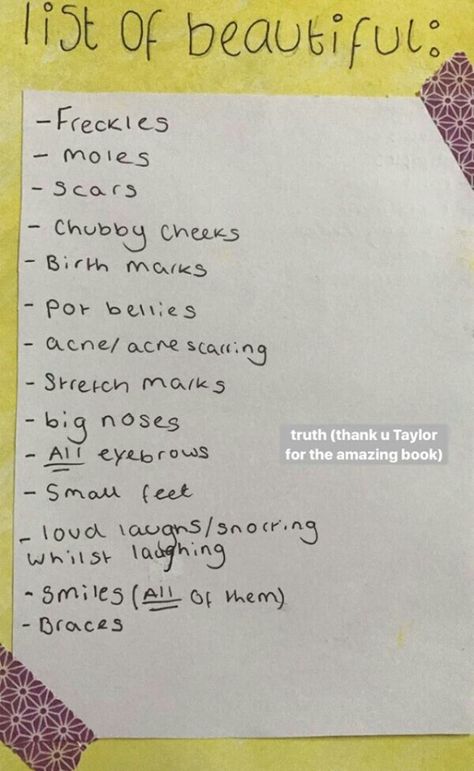 list of beautiful:
- Freckles
- moles
- scars
- chubby cheeks
- Birth marks
- pot bellies
- acne/acne scarring
- Stretch marks
- big noses
- All eyebrows
- Small feet
- loud laughs/snorring
whilst laughing
- smiles (All of them)
- Braces
truth (thank u Taylor
for the amazing book)